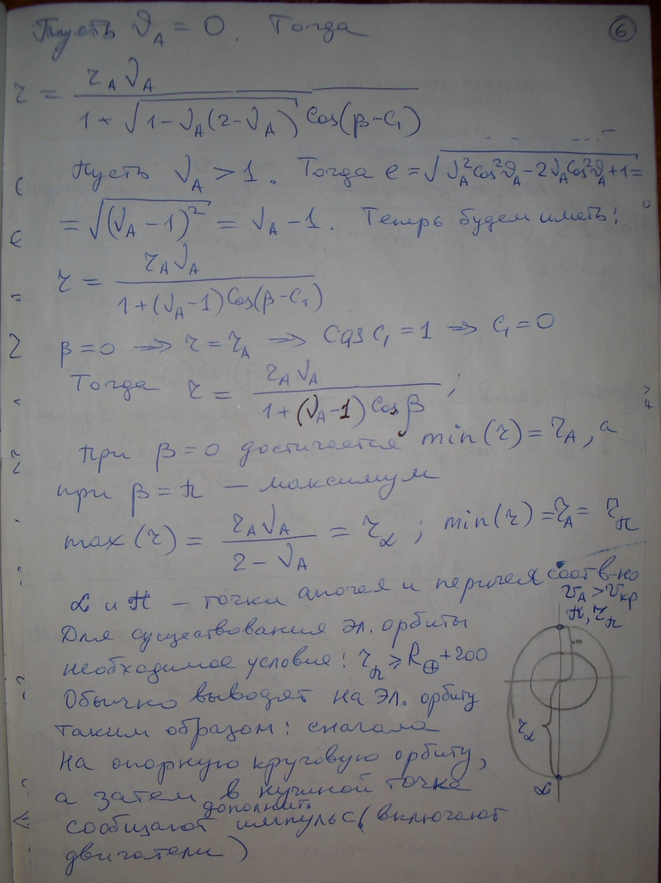 Пусть ϑ_A = 0. Тогда
6
r = r_A ν_A / (1 + √(1 - ν_A(2 - ν_A)) Cos(β - C₁))
Пусть ν_A > 1. Тогда e = √(ν_A² Cos²ϑ_A - 2ν_A Cos²ϑ_A + 1) =
= √((ν_A - 1)²) = ν_A - 1. Теперь будем иметь:
r = r_A ν_A / (1 + (ν_A - 1) Cos(β - C₁))
β = 0 ⟹ r = r_A ⟹ Cos C₁ = 1 ⟹ C₁ = 0
Тогда r = r_A ν_A / (1 + (ν_A - 1) Cos β) ;
При β = 0 достигается min(r) = r_A, а
при β = π — максимум
max(r) = r_A ν_A / (2 - ν_A) = r_α ; min(r) = r_A = r_π
α и π — точки апогея и перигея соотв-но
Для существования эл. орбиты
необходимое условие: r_π ≥ R_⊕ + 200
Обычно выводят на эл. орбиту
таким образом: сначала
на опорную круговую орбиту,
а затем в нужной точке
дополнит
сообщают импульс (включают
двигатели)
v_A > v_кр
π, r_π
r_α
α